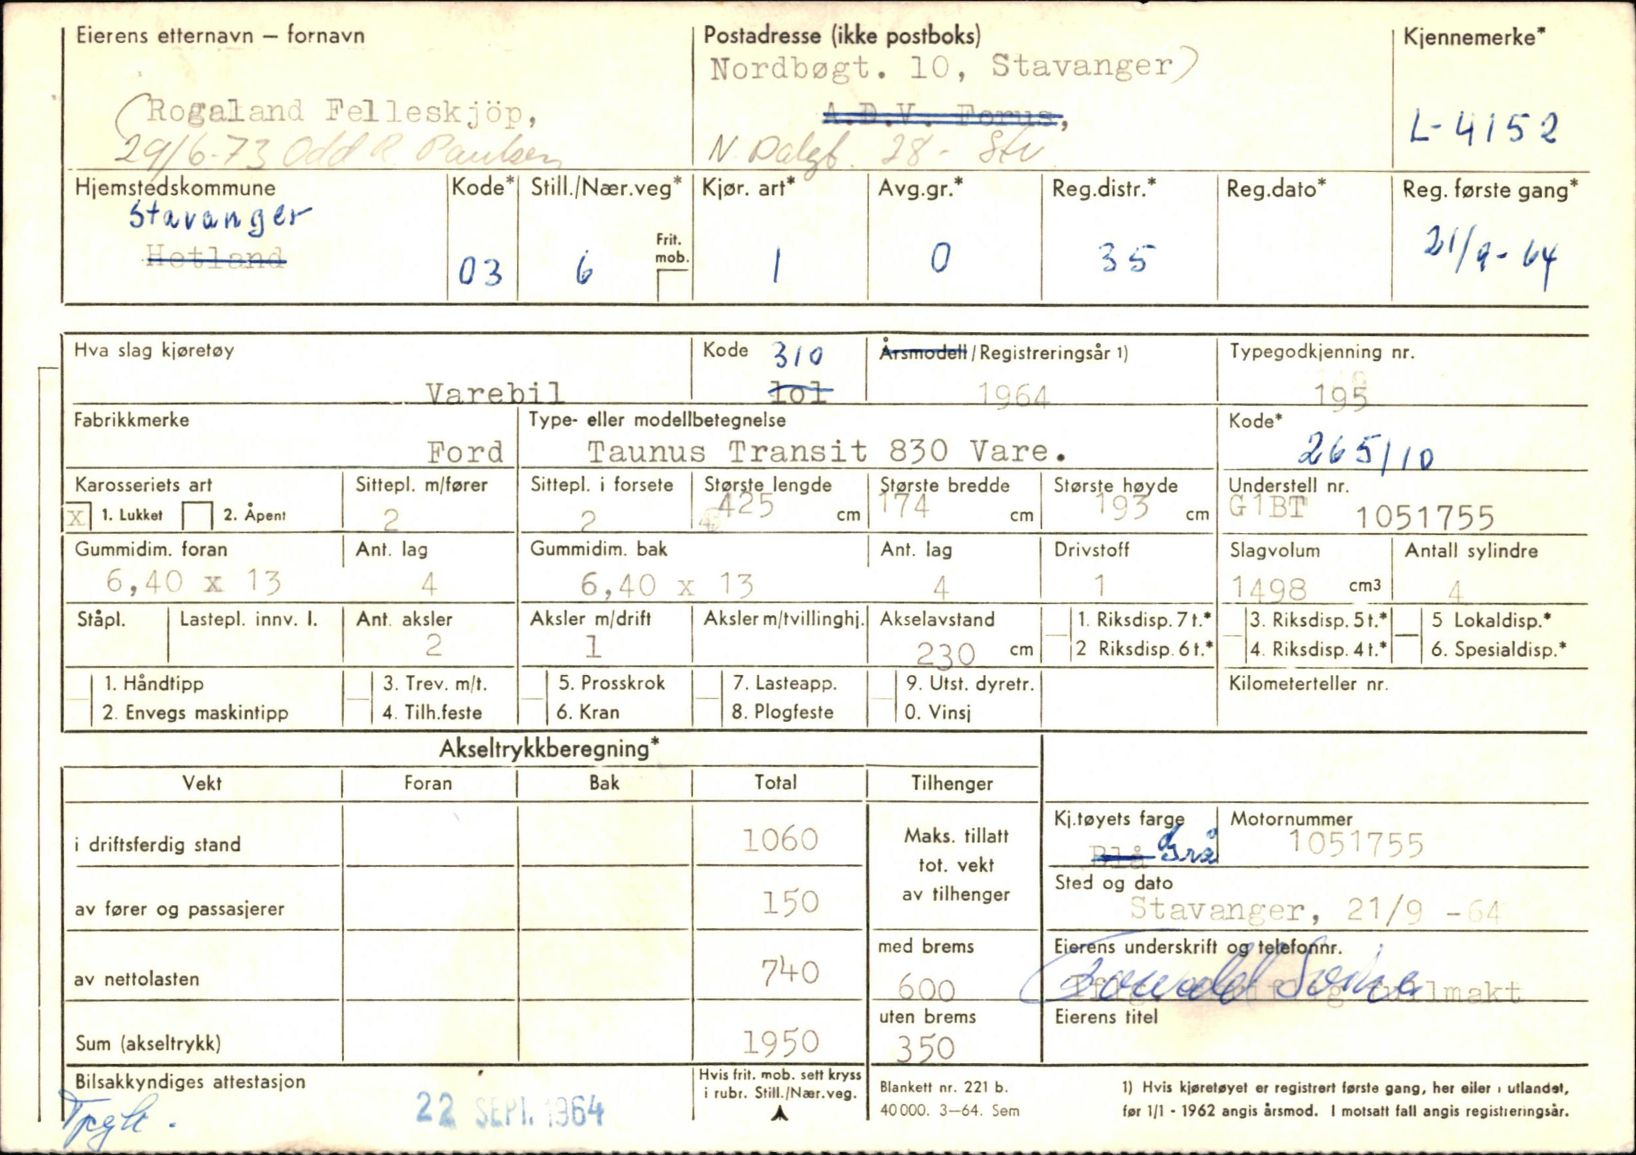 Eierens etternavn – fornavn
Postadresse (ikke postboks)
Kjennemerke*
Nordbøgt. 10, Stavanger)
(Rogaland Felleskjöp,
A.D.V. Forus,
L-4152
29/6-73 Odd R. Paulsen
N. Dalgt. 28 - Stv
Hjemstedskommune
Kode*
Still./Nær.veg*
Kjør. art*
Avg.gr.*
Reg.distr.*
Reg.dato*
Reg. første gang*
Stavanger
Hetland
03
6
Frit. mob.
1
0
35
21/9-64
Hva slag kjøretøy
Kode
310
Årsmodell/Registreringsår 1)
Typegodkjenning nr.
Varebil
lol
1964
195
Fabrikkmerke
Type- eller modellbetegnelse
Kode*
Ford
Taunus Transit 830 Vare.
265/10
Karosseriets art
Sittepl. m/fører
Sittepl. i forsete
Største lengde
Største bredde
Største høyde
Understell nr.
X 1. Lukket
2. Åpent
2
2
425 cm
174 cm
193 cm
G1BT 1051755
Gummidim. foran
Ant. lag
Gummidim. bak
Ant. lag
Drivstoff
Slagvolum
Antall sylindre
6,40 x 13
4
6,40 x 13
4
1
1498 cm3
4
Ståpl.
Lastepl. innv. l.
Ant. aksler
Aksler m/drift
Aksler m/tvillinghj.
Akselavstand
1. Riksdisp. 7 t.*
3. Riksdisp. 5 t.*
5 Lokaldisp.*
2
1
230 cm
2 Riksdisp. 6 t.*
4. Riksdisp. 4 t.*
6. Spesialdisp.*
1. Håndtipp
3. Trev. m/t.
5. Prosskrok
7. Lasteapp.
9. Utst. dyretr.
Kilometerteller nr.
2. Envegs maskintipp
4. Tilh.feste
6. Kran
8. Plogfeste
0. Vinsj
Akseltrykkberegning*
Vekt
Foran
Bak
Total
Tilhenger
i driftsferdig stand
1060
Maks. tillatt
tot. vekt
av tilhenger
Kj.tøyets farge
Motornummer
Blå Grå
1051755
av fører og passasjerer
150
Sted og dato
Stavanger, 21/9 -64
av nettolasten
740
med brems
600
Eierens underskrift og telefonnr.
Sum (akseltrykk)
1950
uten brems
350
Eierens titel
Bilsakkyndiges attestasjon
22 SEPT. 1964
Hvis frit. mob. sett kryss
i rubr. Still./Nær.veg.
Blankett nr. 221 b.
40 000. 3–64. Sem
1) Hvis kjøretøyet er registrert første gang, her eller i utlandet,
før 1/1 - 1962 angis årsmod. I motsatt fall angis registreringsår.